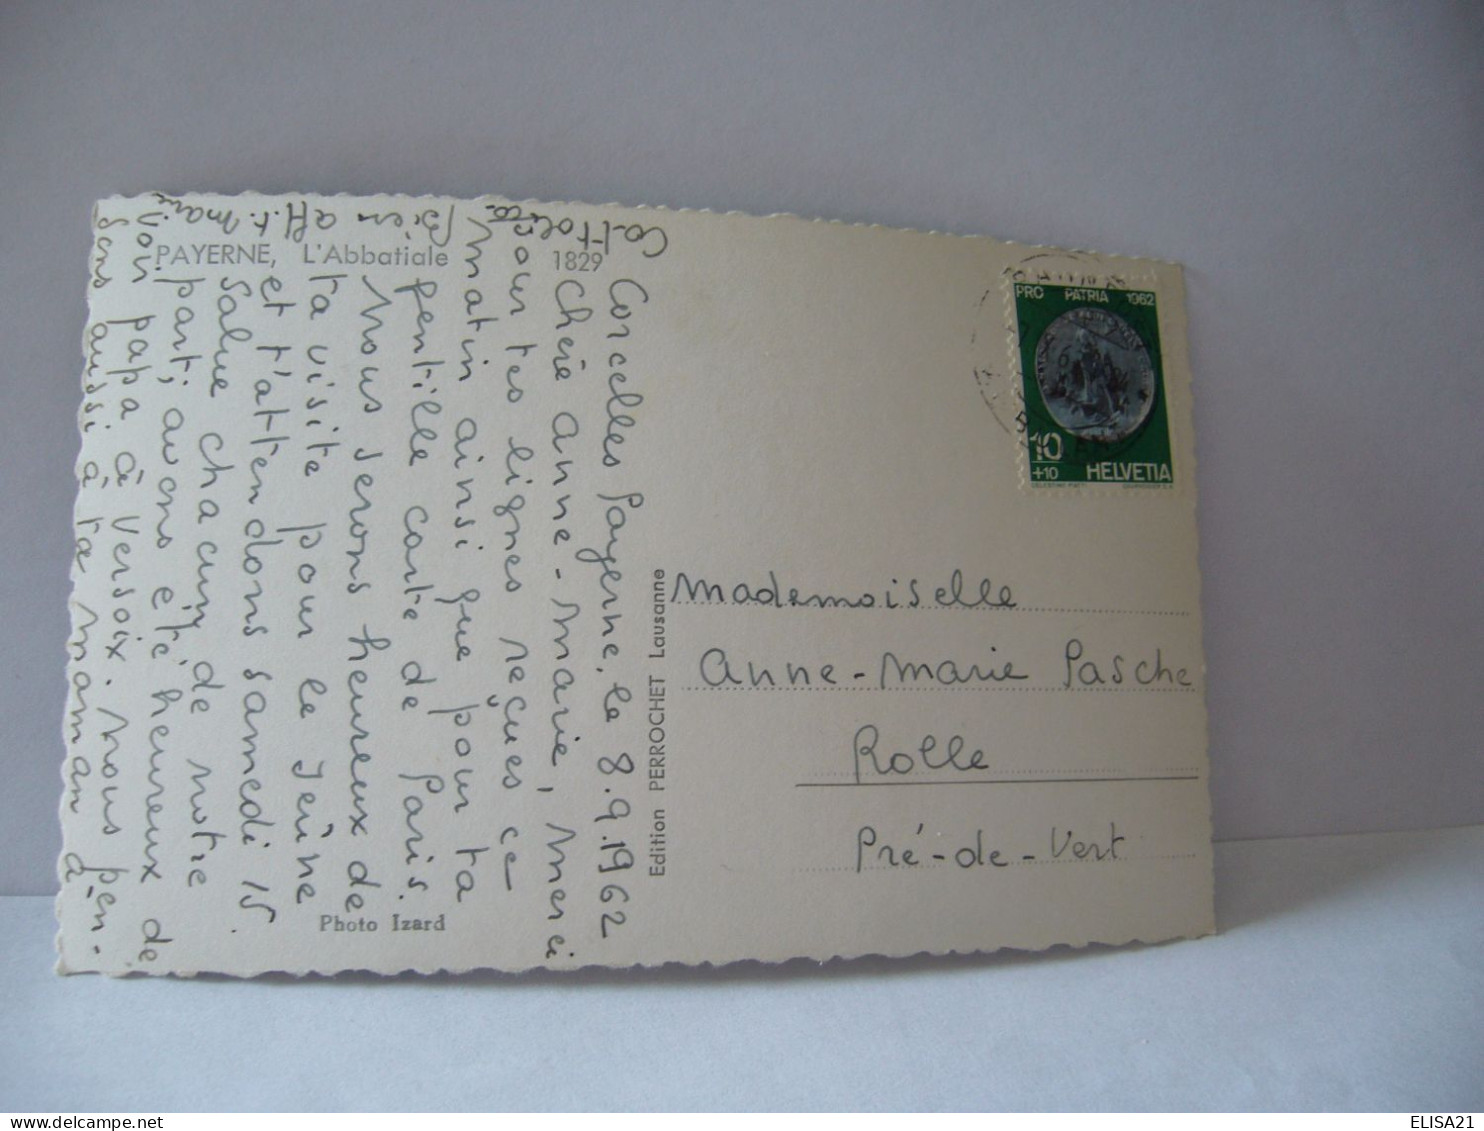 PAYERNE, L'Abbatiale 1829
Corcelles Payerne, le 8.9.1962
Chère Anne-Marie, merci
pour tes lignes reçues ce
matin ainsi que pour ta
gentille carte de Paris.
Nous serons heureux de
ta visite pour le Jeûne
et t'attendons samedi 15.
Salue chacun de notre
part; avons été heureux de
voir papa à Versoix. Nous pen-
sons aussi à ta maman à
Cattolica
Bien aff. t.
marie
Photo Izard
Edition PERROCHET Lausanne
PRO PATRIA 1962
10
+10 HELVETIA
Mademoiselle
Anne-Marie Pasche
Rolle
Pré-de-Vert
ELISA21